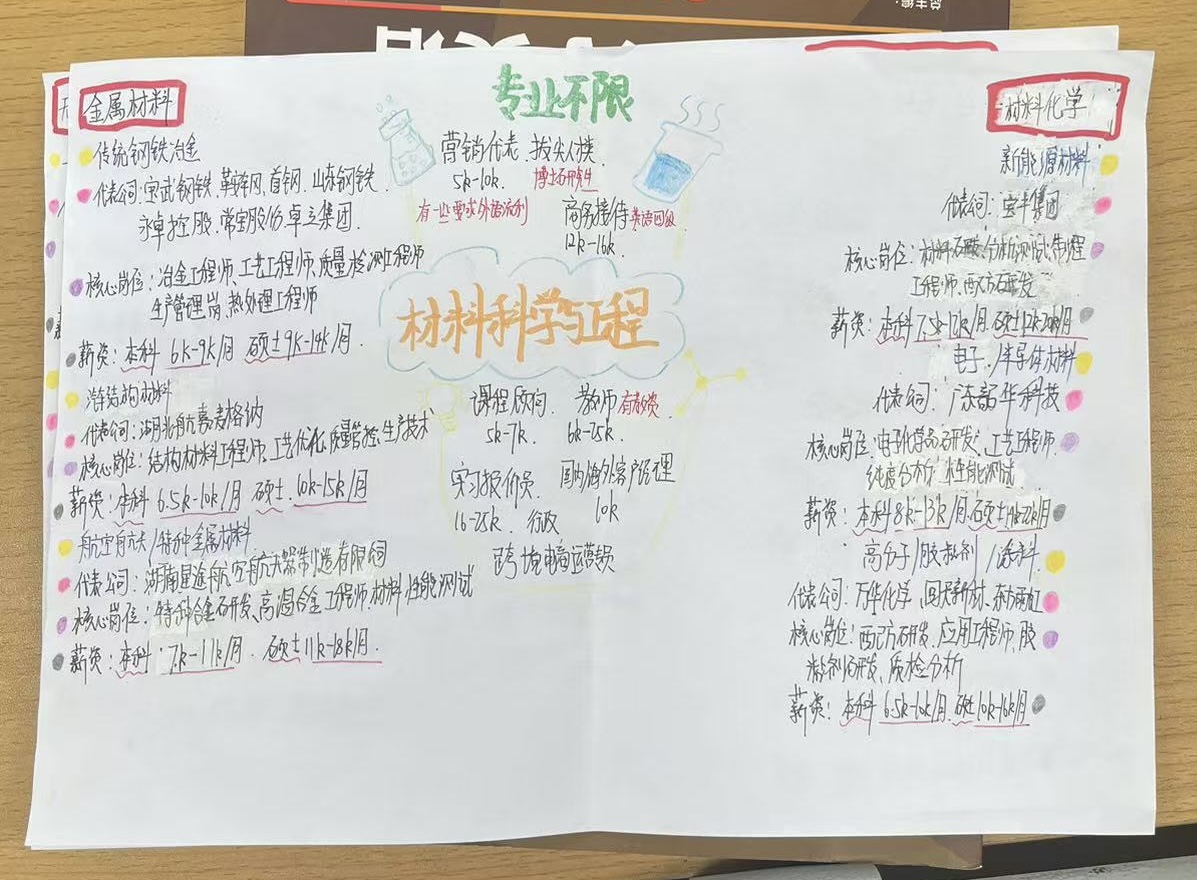 专业不限
营销代表
拔尖人才
5k-10k.
博士研究生
有一些要求外语流利
商务接待 英语四级
12k-16k.
材料科学与工程
课程顾问
教师
5k-7k.
6k-25k.
实习报价员
国内海外客户经理
16-25k.
行政
10k
跨境电商运营
金属材料
传统钢铁冶金
代表公司:宝武钢铁、鞍钢、首钢、山东钢铁、
永卓控股、常宝股份、卓立集团.
核心岗位:冶金工程师、工艺工程师、质量检测工程师
生产管理岗、热处理工程师
薪资:本科 6k-9k/月 硕士9k-14k/月.
结构材料
代表公司:湖北航嘉麦格纳
核心岗位:结构材料工程师、工艺优化、质量管控、生产技术
薪资:本科 6.5k-10k/月 硕士.10k-15k/月
航空航天/特种金属材料
代表公司:湖南星途航空航天器制造有限公司
核心岗位:特种合金研发、高温合金工程师、材料性能测试
薪资:本科:7k-11k/月. 硕士11k-18k/月.
材料化学
新能源材料
代表公司:宝丰集团
核心岗位:材料研发、分析测试、制程
工程师、配方研发
薪资:本科 /月.硕士 /月
电子/半导体材料
代表公司:广东韶华科技
核心岗位:电子化学品研发、工艺工程师、
纯度分析、性能测试
薪资:本科8k-13k/月.硕士 /月
高分子/胶黏剂/涂料
代表公司:万华化学、回天新材、东方雨虹
核心岗位:配方研发、应用工程师、胶
黏剂研发、质检分析
薪资:本科 6.5k-10k/月.硕士10k-16k/月